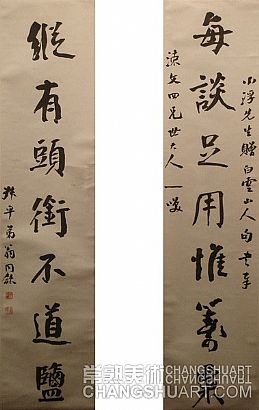 每談足用惟籌
小浮先生贈白雲山人句書奉
文四兄世大人一噱
縱有頭銜不道鹽
叔平弟翁同龢
常熟美術
CHANGSHUART
CHANGSHUART.COM